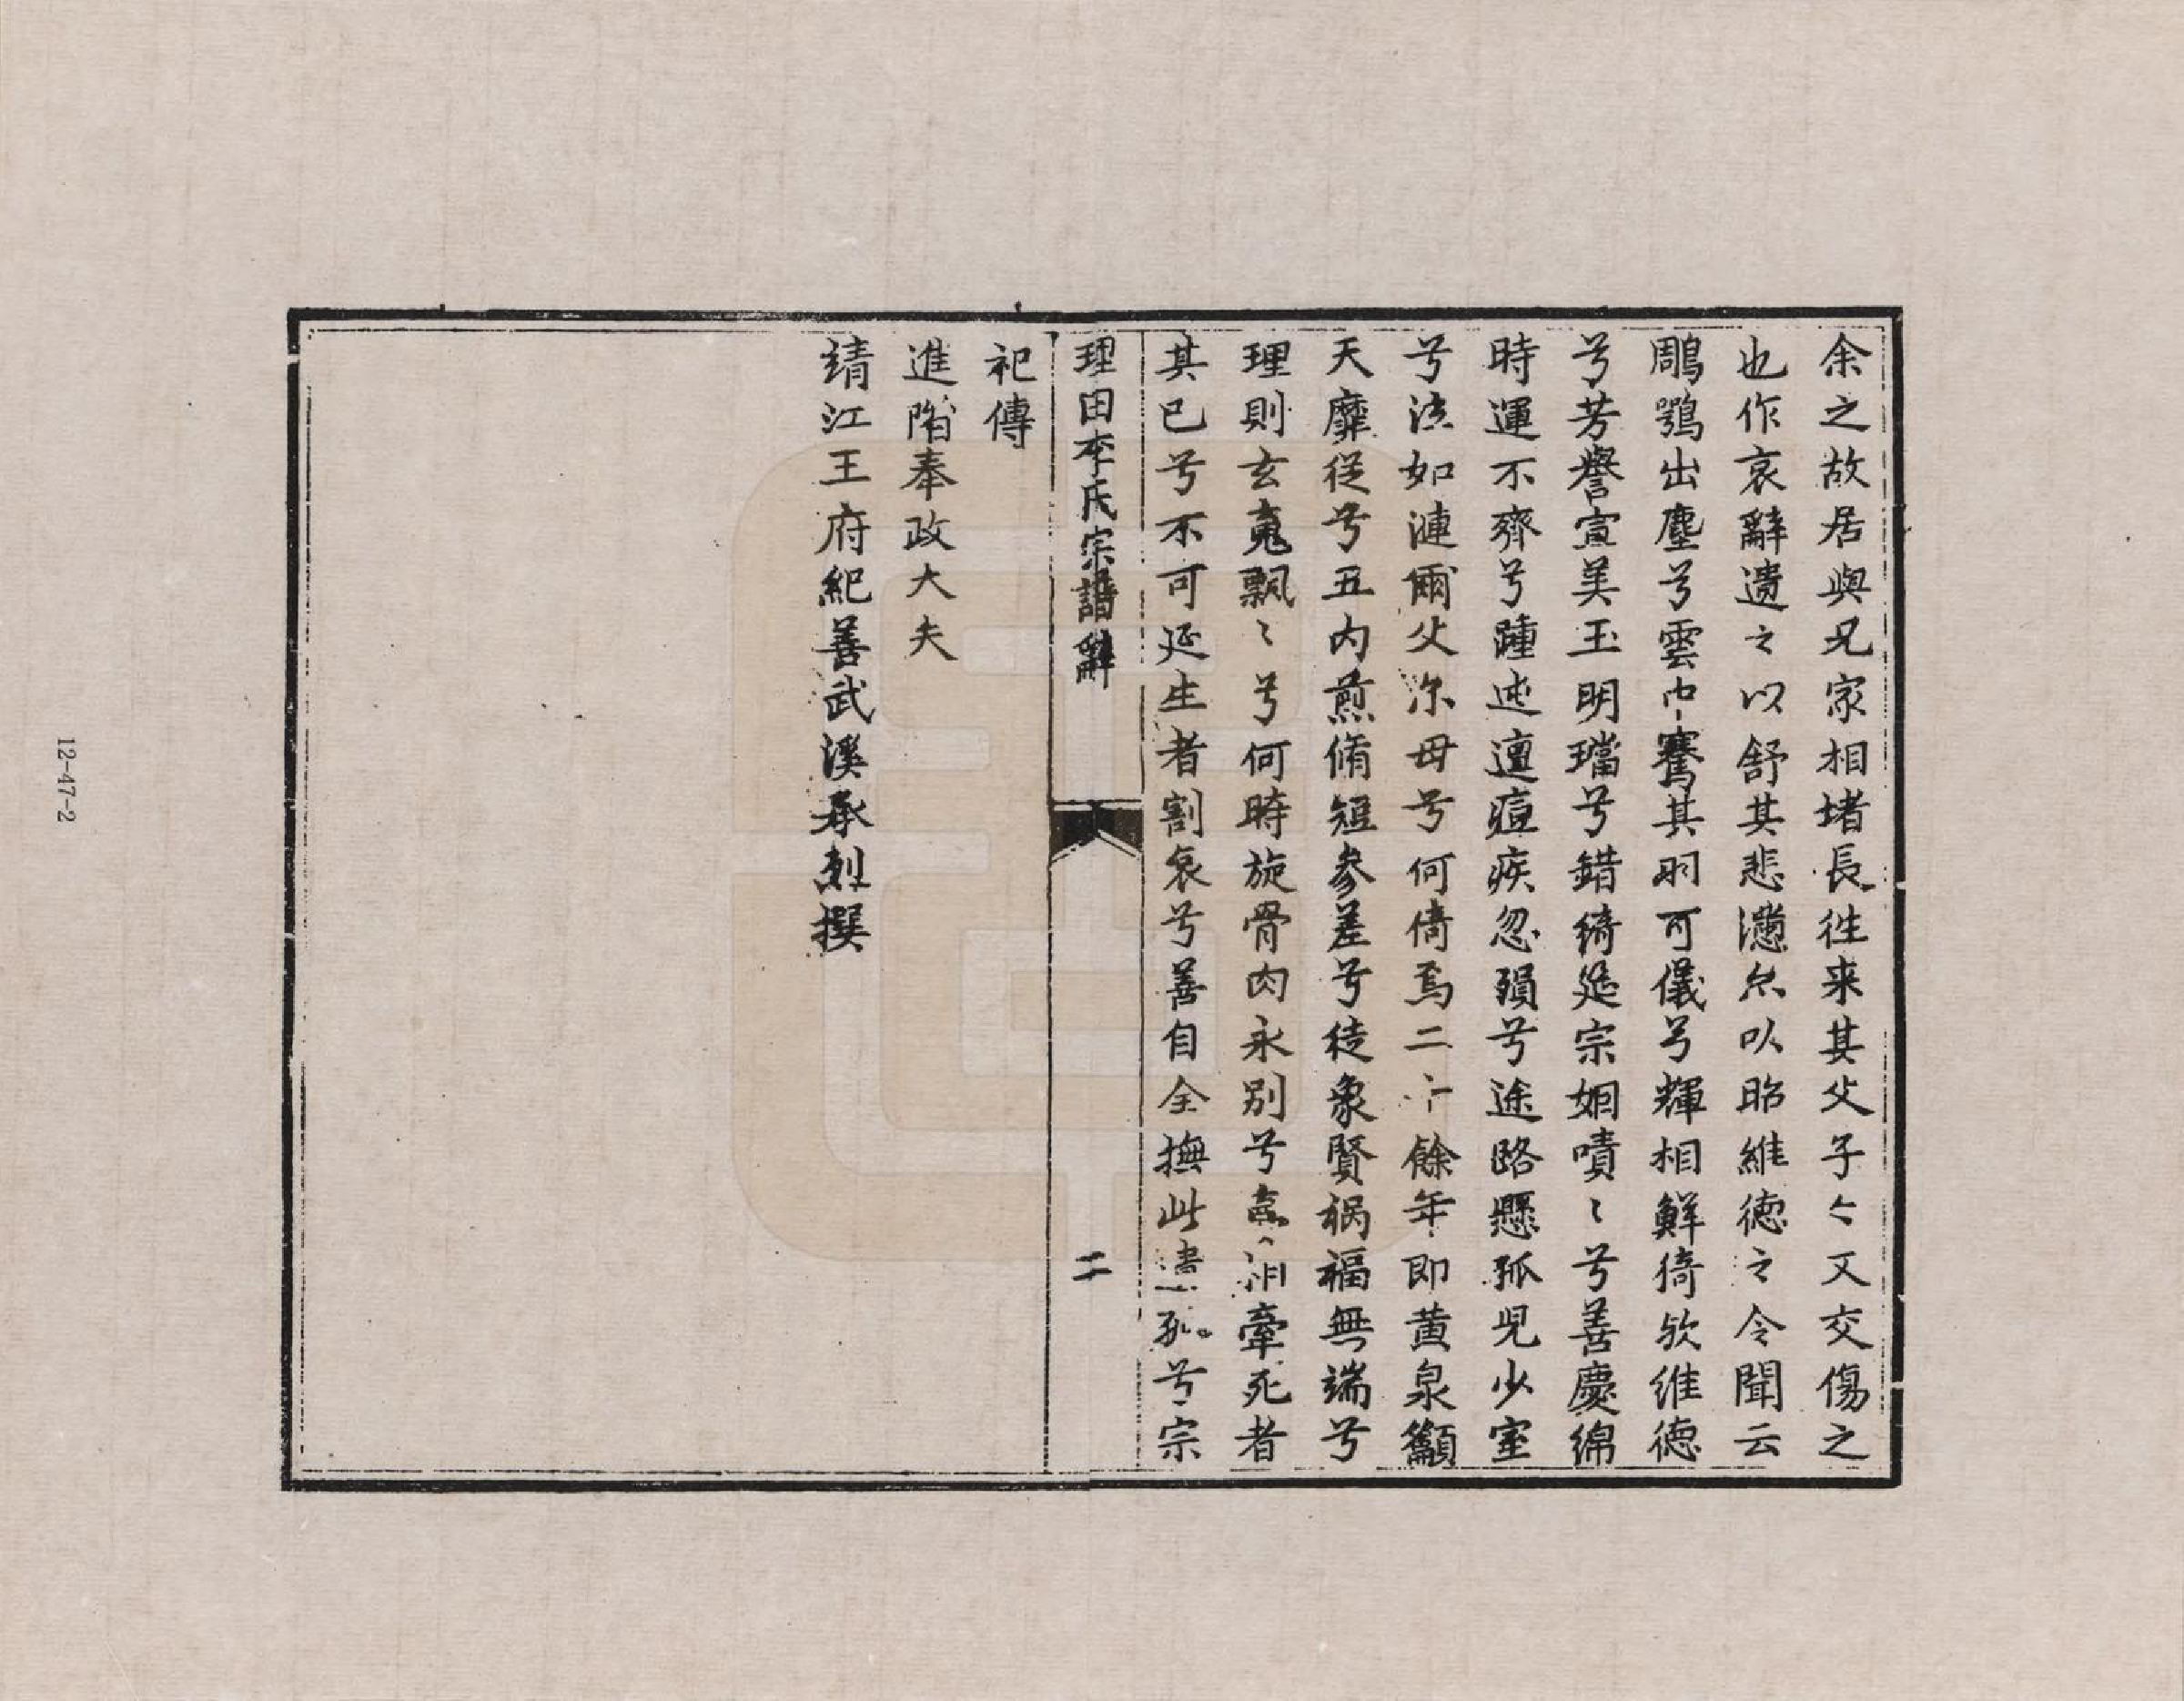 余之故居與兄家相堵長徃来其父子々又交傷之
也作哀辭遺之以舒其悲懣亦以昭維德之令聞云
鵰鶚出塵兮雲中騫其羽可儀兮輝相鮮猗欤維德
兮芳譽宣美玉明璫兮錯綺筵宗姻嘖〻兮善慶綿
時運不齊兮踵迍邅痘疾忽殞兮途路懸孤児少室
兮泣如漣爾父尔母兮何倚焉二十餘年即黄泉籲
天靡從兮五内煎脩短参差兮徒象賢禍福無端兮
理則玄嵬飄〻兮何時旋骨肉永別兮牽死者
其已兮不可延生者割哀兮善自全撫此遺孤兮宗
理田李氏宗譜辭 二
祀傳
進階奉政大夫
靖江王府紀善武溪承烈撰
12-47-2